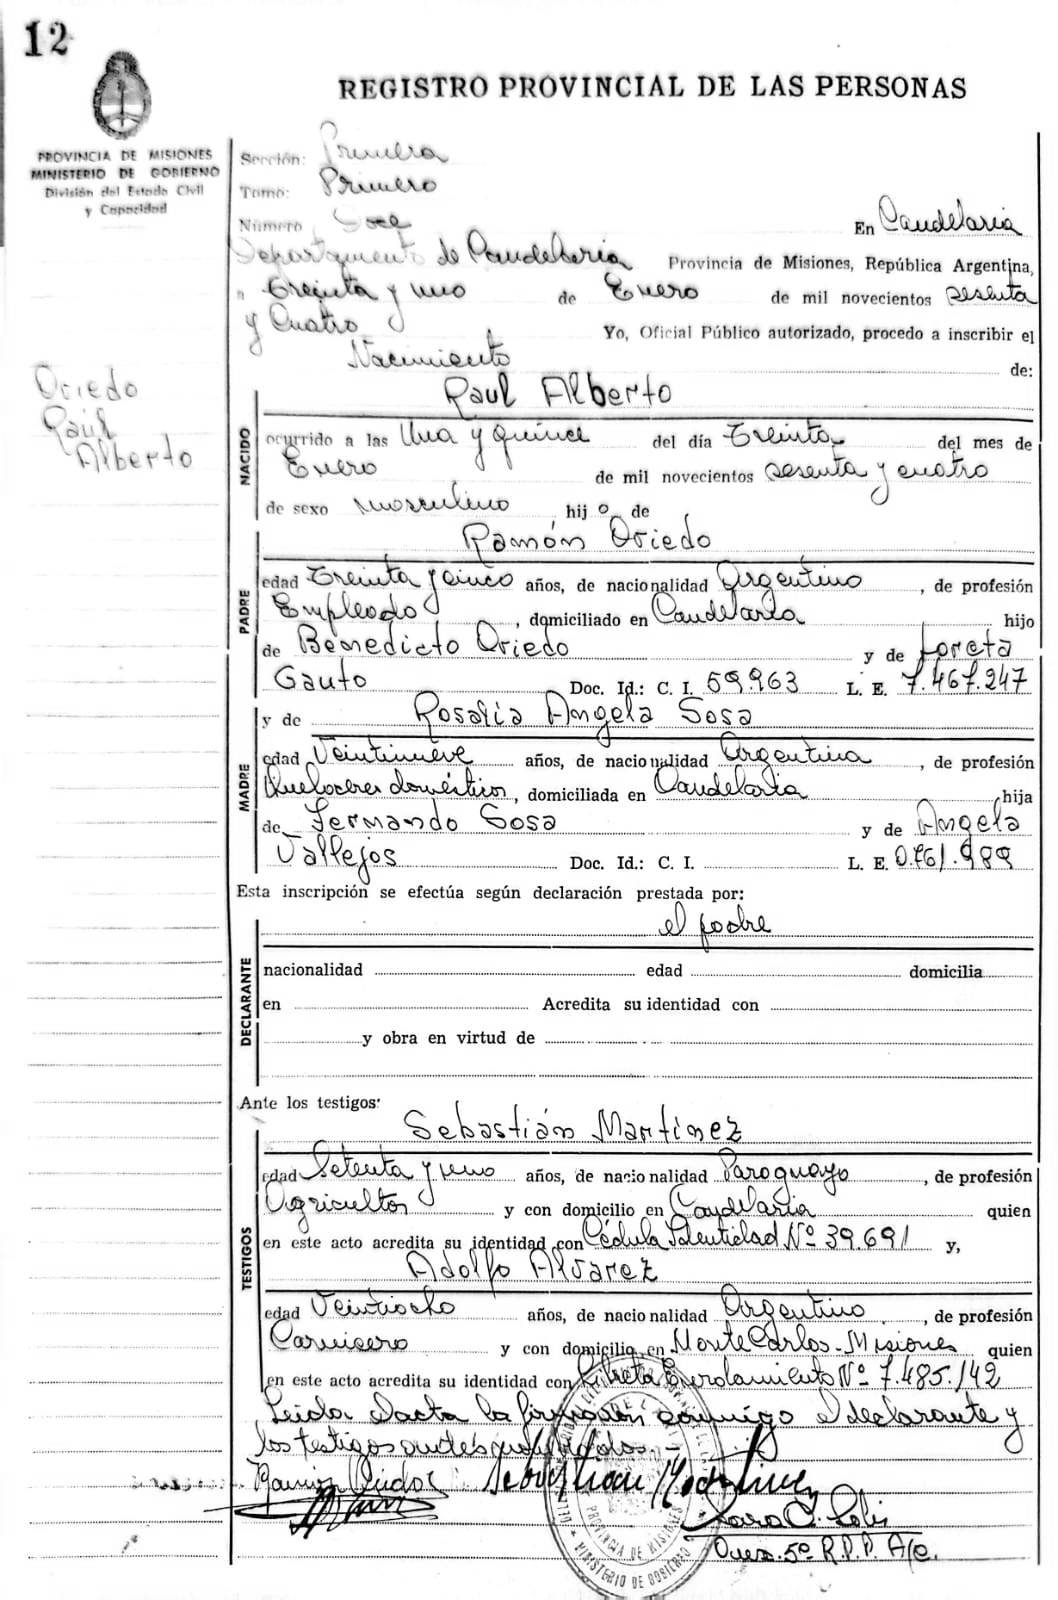 12
REGISTRO PROVINCIAL DE LAS PERSONAS
PROVINCIA DE MISIONES
MINISTERIO DE GOBIERNO
División del Estado Civil
y Capacidad
Sección: Primera
Tomo: Primero
Número Doce
En Candelaria
Departamento de Candelaria Provincia de Misiones, República Argentina,
a treinta y uno de Enero de mil novecientos sesenta
y Cuatro Yo, Oficial Público autorizado, procedo a inscribir el
Nacimiento de:
Oviedo
Raúl
Alberto
Raul Alberto
NACIDO
ocurrido a las Una y quince del día Treinta del mes de
Enero de mil novecientos sesenta y cuatro
de sexo masculino, hijo de
Ramón Oviedo
PADRE
edad Treinta y cinco años, de nacionalidad Argentino, de profesión
Empleado, domiciliado en Candelaria hijo
de Benedicto Oviedo y de Loreta
Gauto Doc. Id.: C. I. 59.963 L. E. 7.467.247
y de Rosalia Angela Sosa
MADRE
edad Veintinueve años, de nacionalidad Argentina, de profesión
Quehaceres domésticos, domiciliada en Candelaria, hija
de Fernando Sosa y de Angela
Vallejos Doc. Id.: C. I. L. E.
Esta inscripción se efectúa según declaración prestada por:
el padre
DECLARANTE
nacionalidad edad domicilia
en Acredita su identidad con
y obra en virtud de
Ante los testigos:
Sebastián Martinez
TESTIGOS
edad Setenta y uno años, de nacionalidad Paraguayo, de profesión
Agricultor y con domicilio en Candelaria quien
en este acto acredita su identidad con Cédula Identidad Nº 39.691 y,
Adolfo Alvarez
edad Veintiocho años, de nacionalidad Argentino, de profesión
Carnicero y con domicilio en Monte Carlos-Misiones quien
en este acto acredita su identidad con Libreta Enrolamiento Nº 7.485.142
Leida el acta la firman conmigo el declarante y
los testigos
Ramón Oviedo Sebastian Martinez
PROVINCIA DE MISIONES
MINISTERIO DE GOBIERNO
R.P.P. A/c.